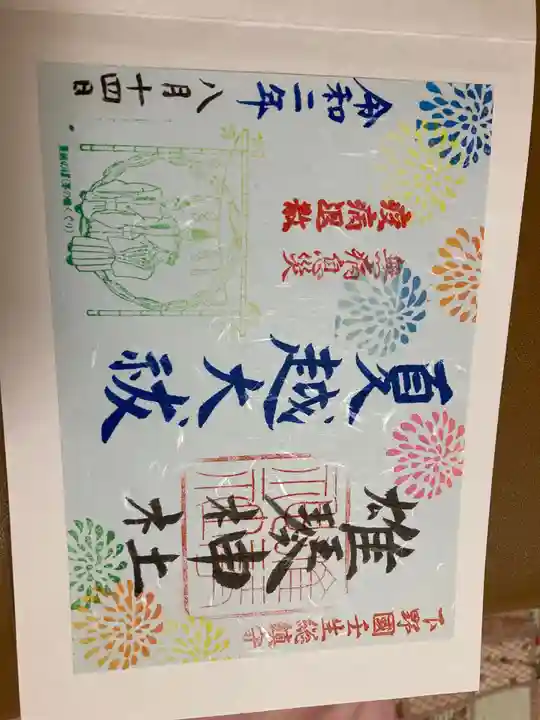 下野國壬生総鎮守
雄琴神社
夏越大祓
無病息災
疫病退散
令和二年八月十四日